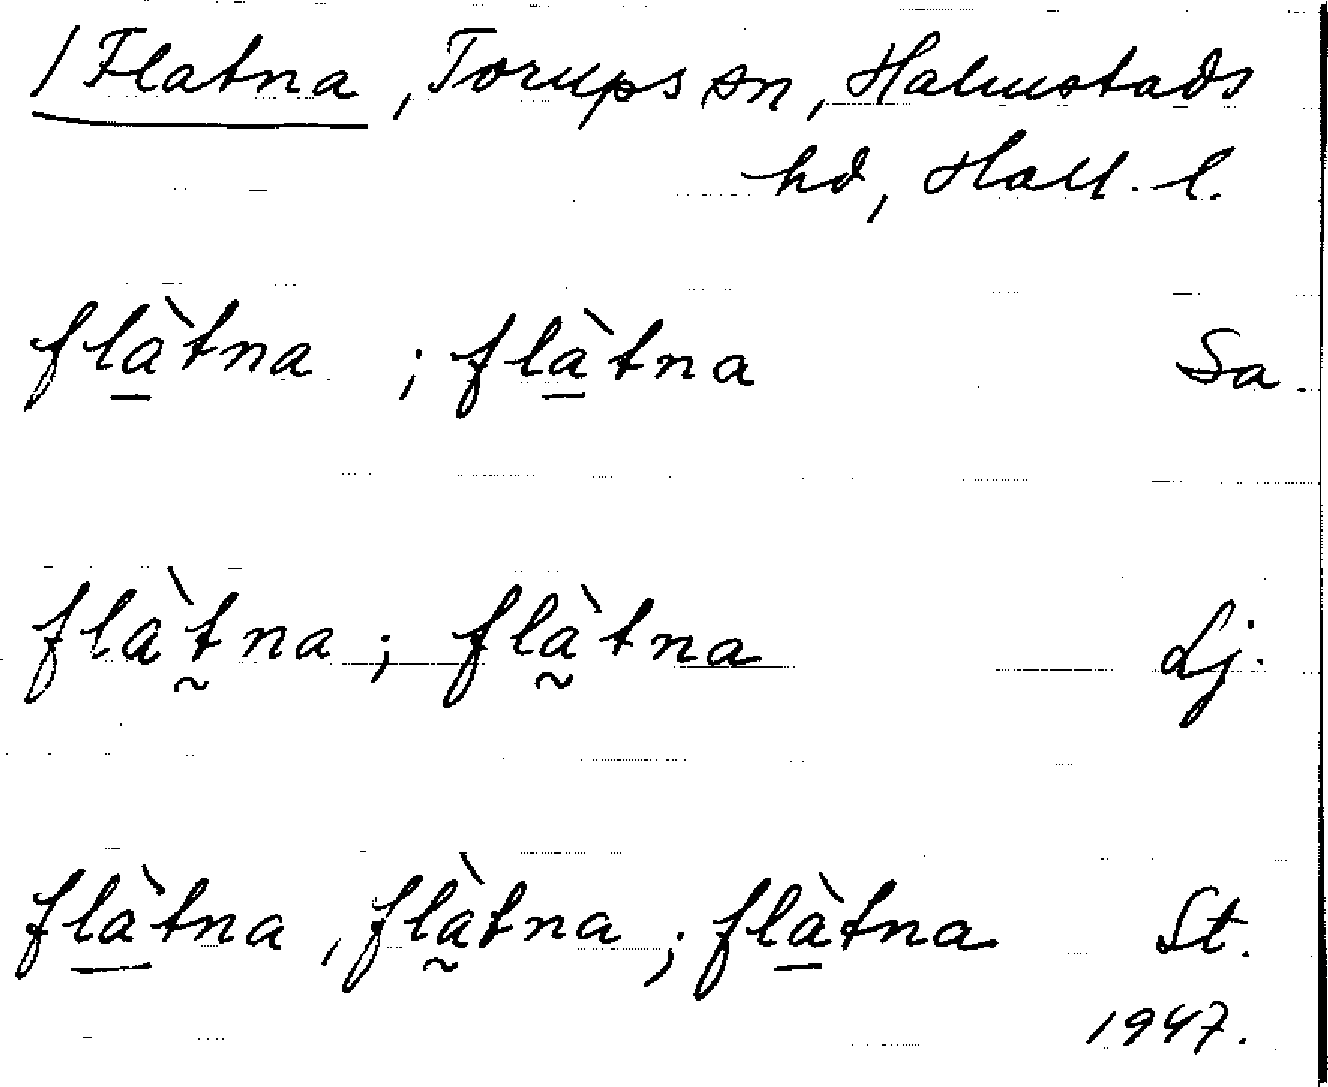 / Flatna, Torups sn, Halmstads
hd, Hall. l.
flàtna ; flàtna Sa.
flàtna ; flàtna Lj.
flàtna , flàtna ; flàtna St.
1947.